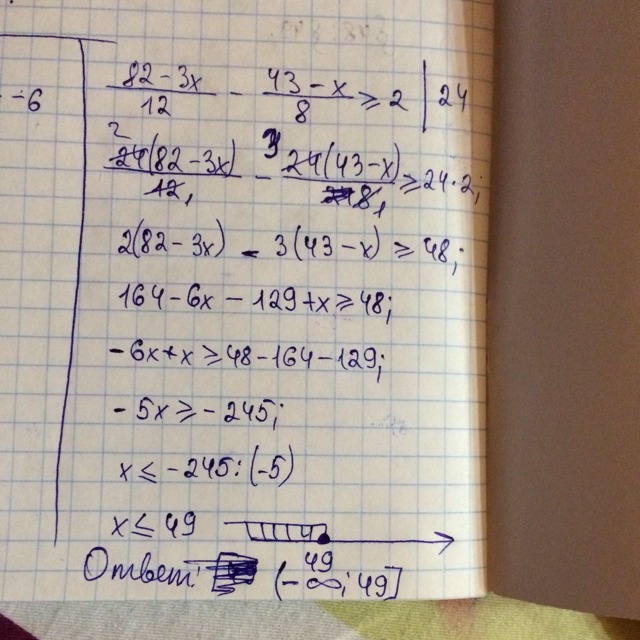 -6
82-3x/12 - 43-x/8 ≥ 2 | 24
2 24(82-3x)/12, - 3 24(43-x)/8, ≥ 24·2;
2(82-3x) - 3(43-x) ≥ 48;
164-6x-129+x ≥ 48;
-6x+x ≥ 48-164-129;
-5x ≥ -245;
x ≤ -245:(-5)
x ≤ 49
49
Ответ: (-∞; 49]